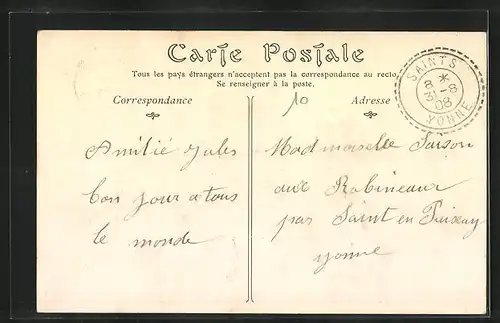 Carte Postale
Tous les pays étrangers n'acceptent pas la correspondance au recto.
Se renseigner à la poste.
Correspondance
Adresse
10
SAINTS
8 *
31-8
08
YONNE
Amitié Jules
bon jour a tous
le monde
Mad moiselle
aux Robineaux
par Saint en Puisay
yonne